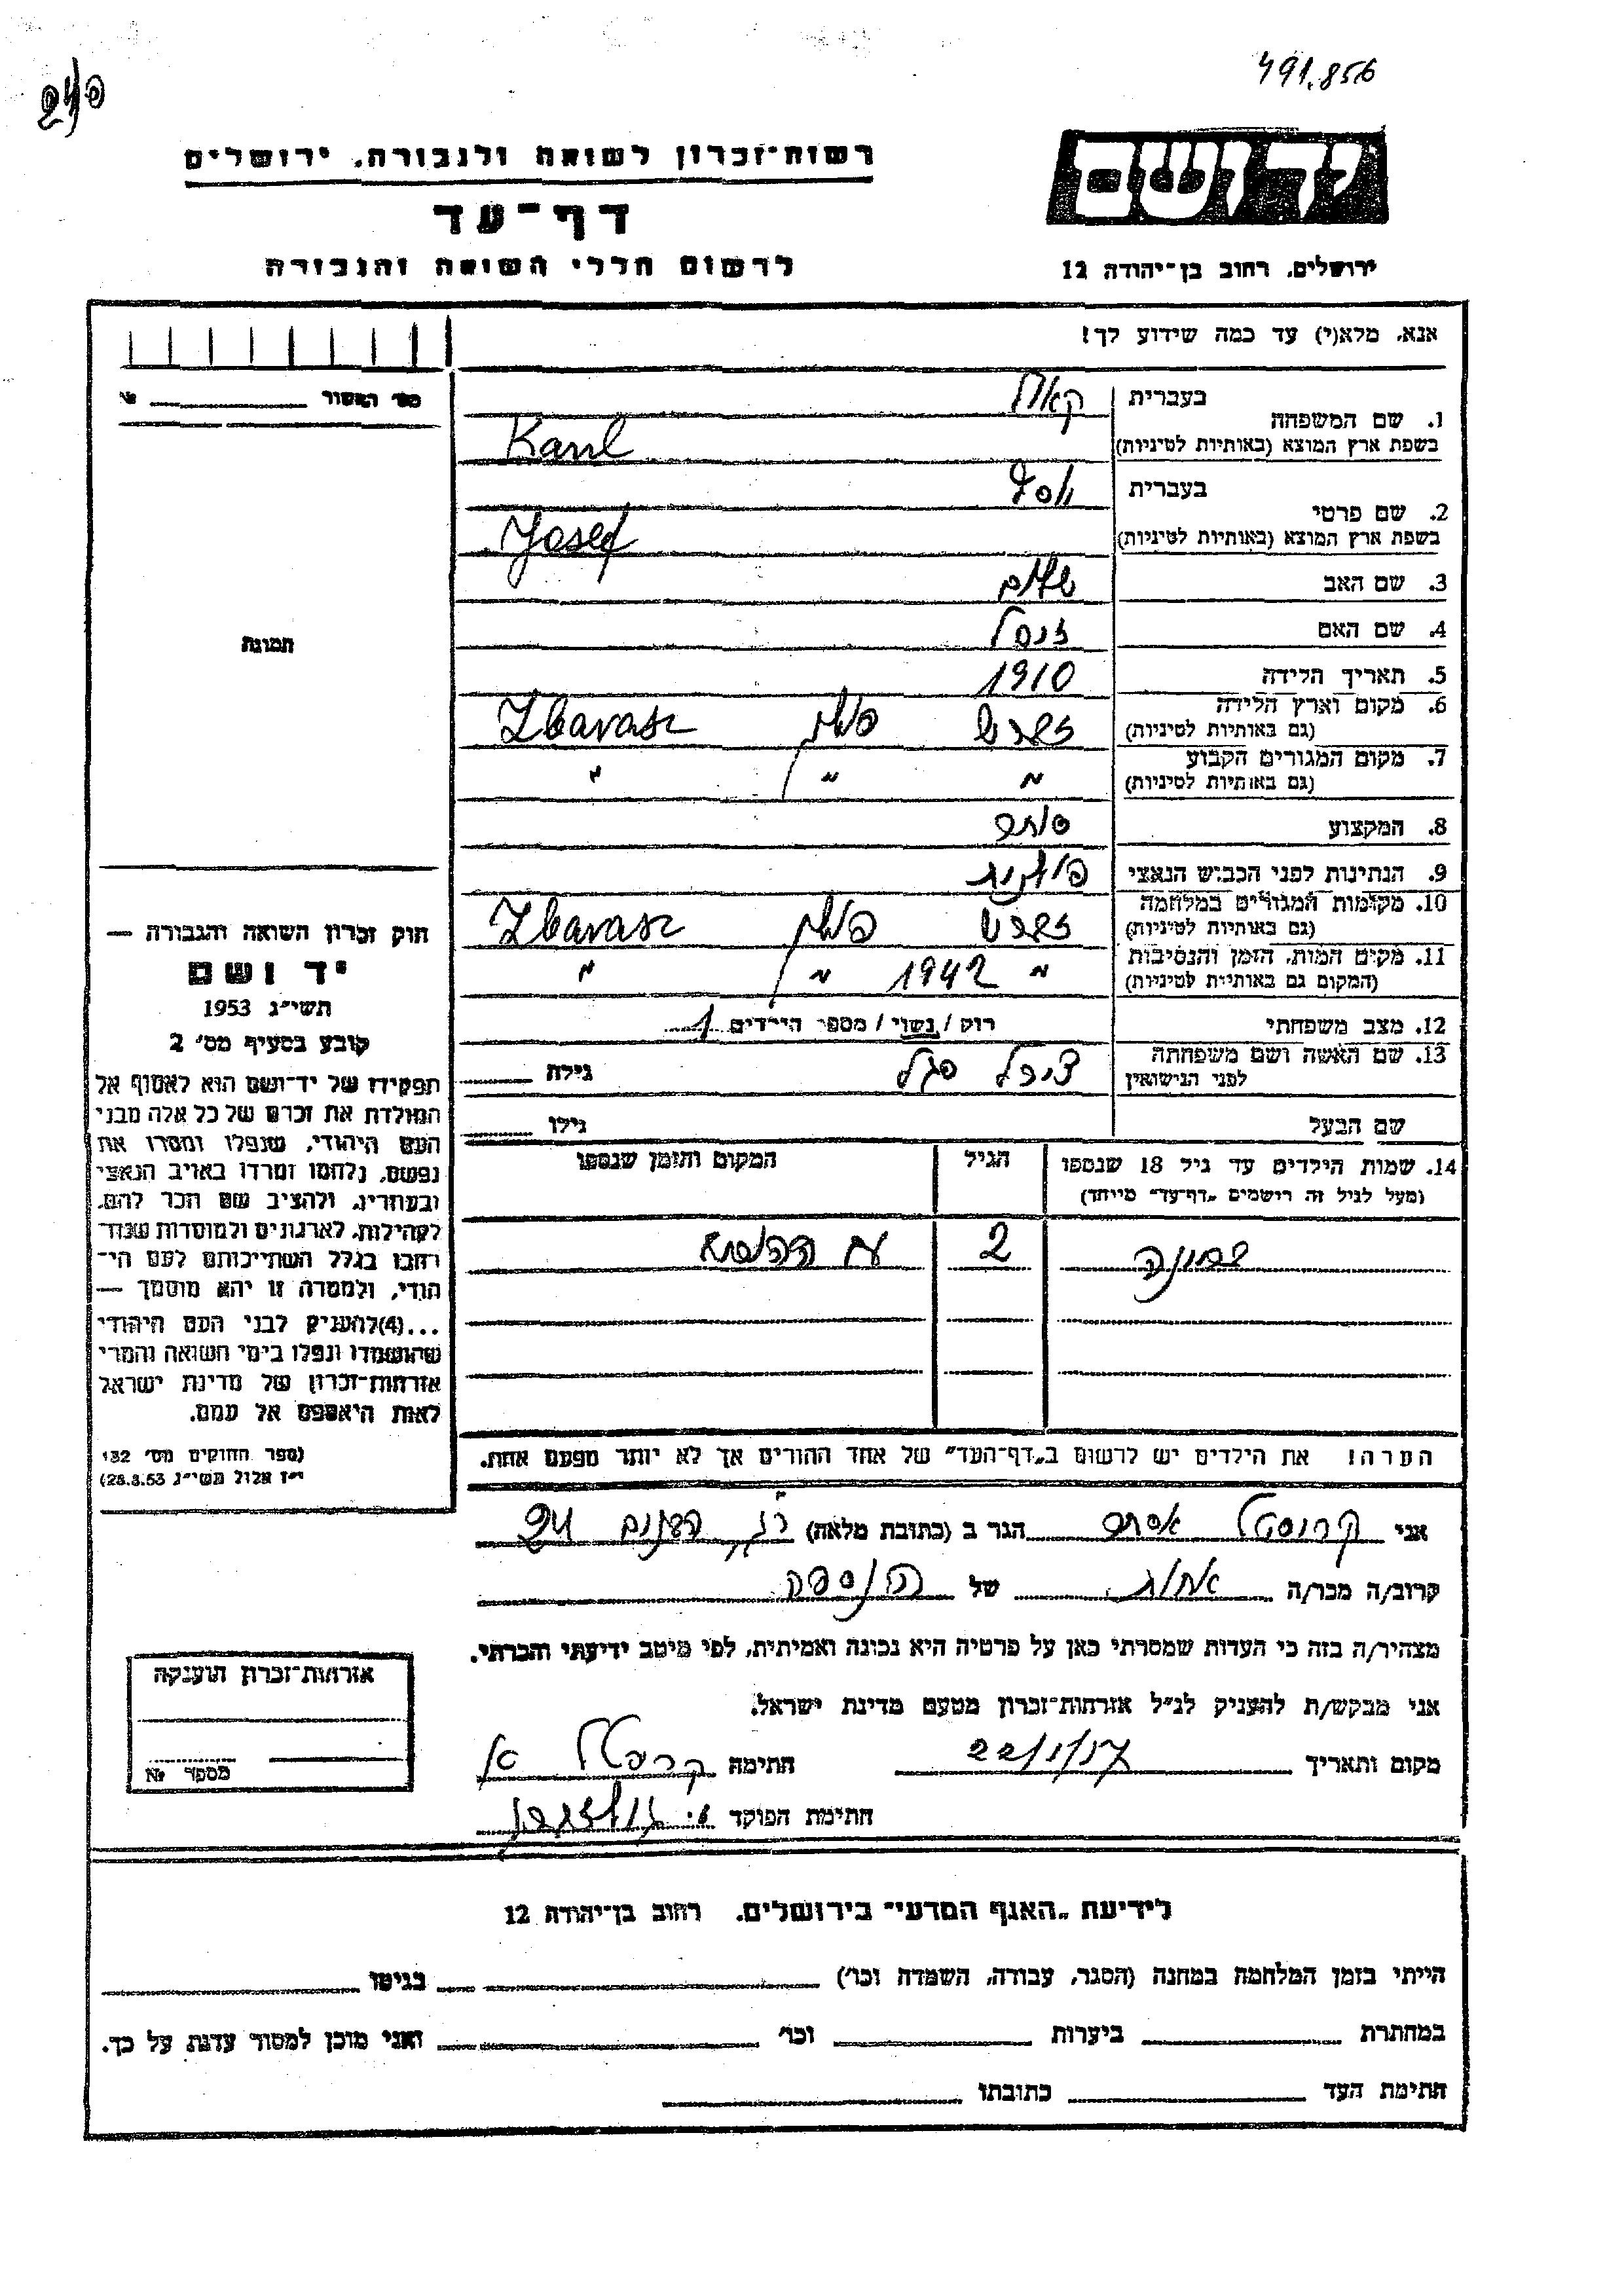 491.856
יד ושם
רשות־זכרון לשואה ולגבורה. ירושלים
דף־עד
לרשום חללי השואה והגבורה
ירושלים. רחוב בן־יהודה 12
אנא. מלא(י) עד כמה שידוע לך!
מס׳ האשור № 
1. שם המשפחה בעברית
בשפת ארץ המוצא (באותיות לטיניות) Karil
2. שם פרטי בעברית יוסף
בשפת ארץ המוצא (באותיות לטיניות) Josef
3. שם האב שלום
4. שם האם
5. תאריך הלידה 1910
6. מקום וארץ הלידה פולין Zbarasz
(גם באותיות לטיניות)
7. מקום המגורים הקבוע " " "
(גם באותיות לטיניות)
8. המקצוע סוחר
9. הנתינות לפני הכבוש הנאצי פולנית
10. מקומות המגורים במלחמה פולין Zbarasz
(גם באותיות לטיניות)
11. מקום המות. הזמן והנסיבות " 1942 " "
(המקום גם באותיות לטיניות)
12. מצב משפחתי רוק / נשוי / מספר הילדים 1
13. שם האשה ושם משפחתה סגל גילה
לפני הנישואין
שם הבעל גילו
14. שמות הילדים עד גיל 18 שנספו הגיל המקום והזמן שנספו
(מעל לגיל זה רישמים „דף־עד״ מיוחד)
2 עם
הערה! את הילדים יש לרשום ב„דף־העד״ של אחד ההורים אך לא יותר מפעם אחת.
תמונה
חוק זכרון השואה והגבורה —
יד ושם
תשי״ג 1953
קובע בסעיף מס׳ 2
תפקידו של יד־ושם הוא לאסוף אל
המולדת את זכרם של כל אלה מבני
העם היהודי, שנפלו ומסרו את
נפשם, נלחמו ומרדו באויב הנאצי
ובעוזריו, ולהציב שם וזכר להם,
לקהילות, לארגונים ולמוסדות שנח־
רבו בגלל השתייכותם לעם הי־
הודי, ולמטרה זו יהא מוסמך —
...(4)להעניק לבני העם היהודי
שהושמדו ונפלו בימי השואה והמרי
אזרחות־זכרון של מדינת ישראל
לאות היאספם אל עמם.
(ספר החוקים מס׳ 132,
י״ז אלול תשי״ג 28.8.53)
אני אסתר הגר ב (כתובת מלאה) רמת גן
קרוב/ה מכר/ה אחות של הנספה
מצהיר/ה בזה כי העדות שמסרתי כאן על פרטיה היא נכונה ואמיתית, לפי מיטב ידיעתי והכרתי.
אני מבקש/ת להעניק לנ״ל אזרחות־זכרון מטעם מדינת ישראל.
מקום ותאריך 22/1/57 חתימה
חתימת הפוקד
אזרחות־זכרון הוענקה
מספר №
לידיעת „האגף המדעי״ בירושלים. רחוב בן־יהודה 12
הייתי בזמן המלחמה במחנה (הסגר, עבודה, השמדה וכו׳) בגיטו
במחתרת ביערות וכו׳ ואני מוכן למסור עדות על כך.
חתימת העד כתובתו